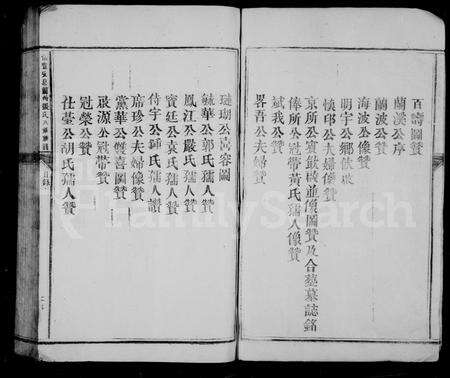 百壽圖贊
蘭溪公序
蘭波公贊
海波公像贊
明宇公鄉飲
公夫婦像贊
京所公並像圖贊及合墓誌銘
俸所公冠帶黃氏孺人像贊
斌我公贊
畧吾公夫婦贊
璉瑚公喜容圖
毓華公郭氏孺人贊
鳳江公嚴氏孺人贊
寶廷公袁氏孺人贊
侍宇公鍾氏孺人讚
席珍公夫婦像贊
黨華公雙喜圖贊
啟源公冠帶贊
冠榮公贊
仕臺公胡氏孺人贊
目錄
FamilySearch